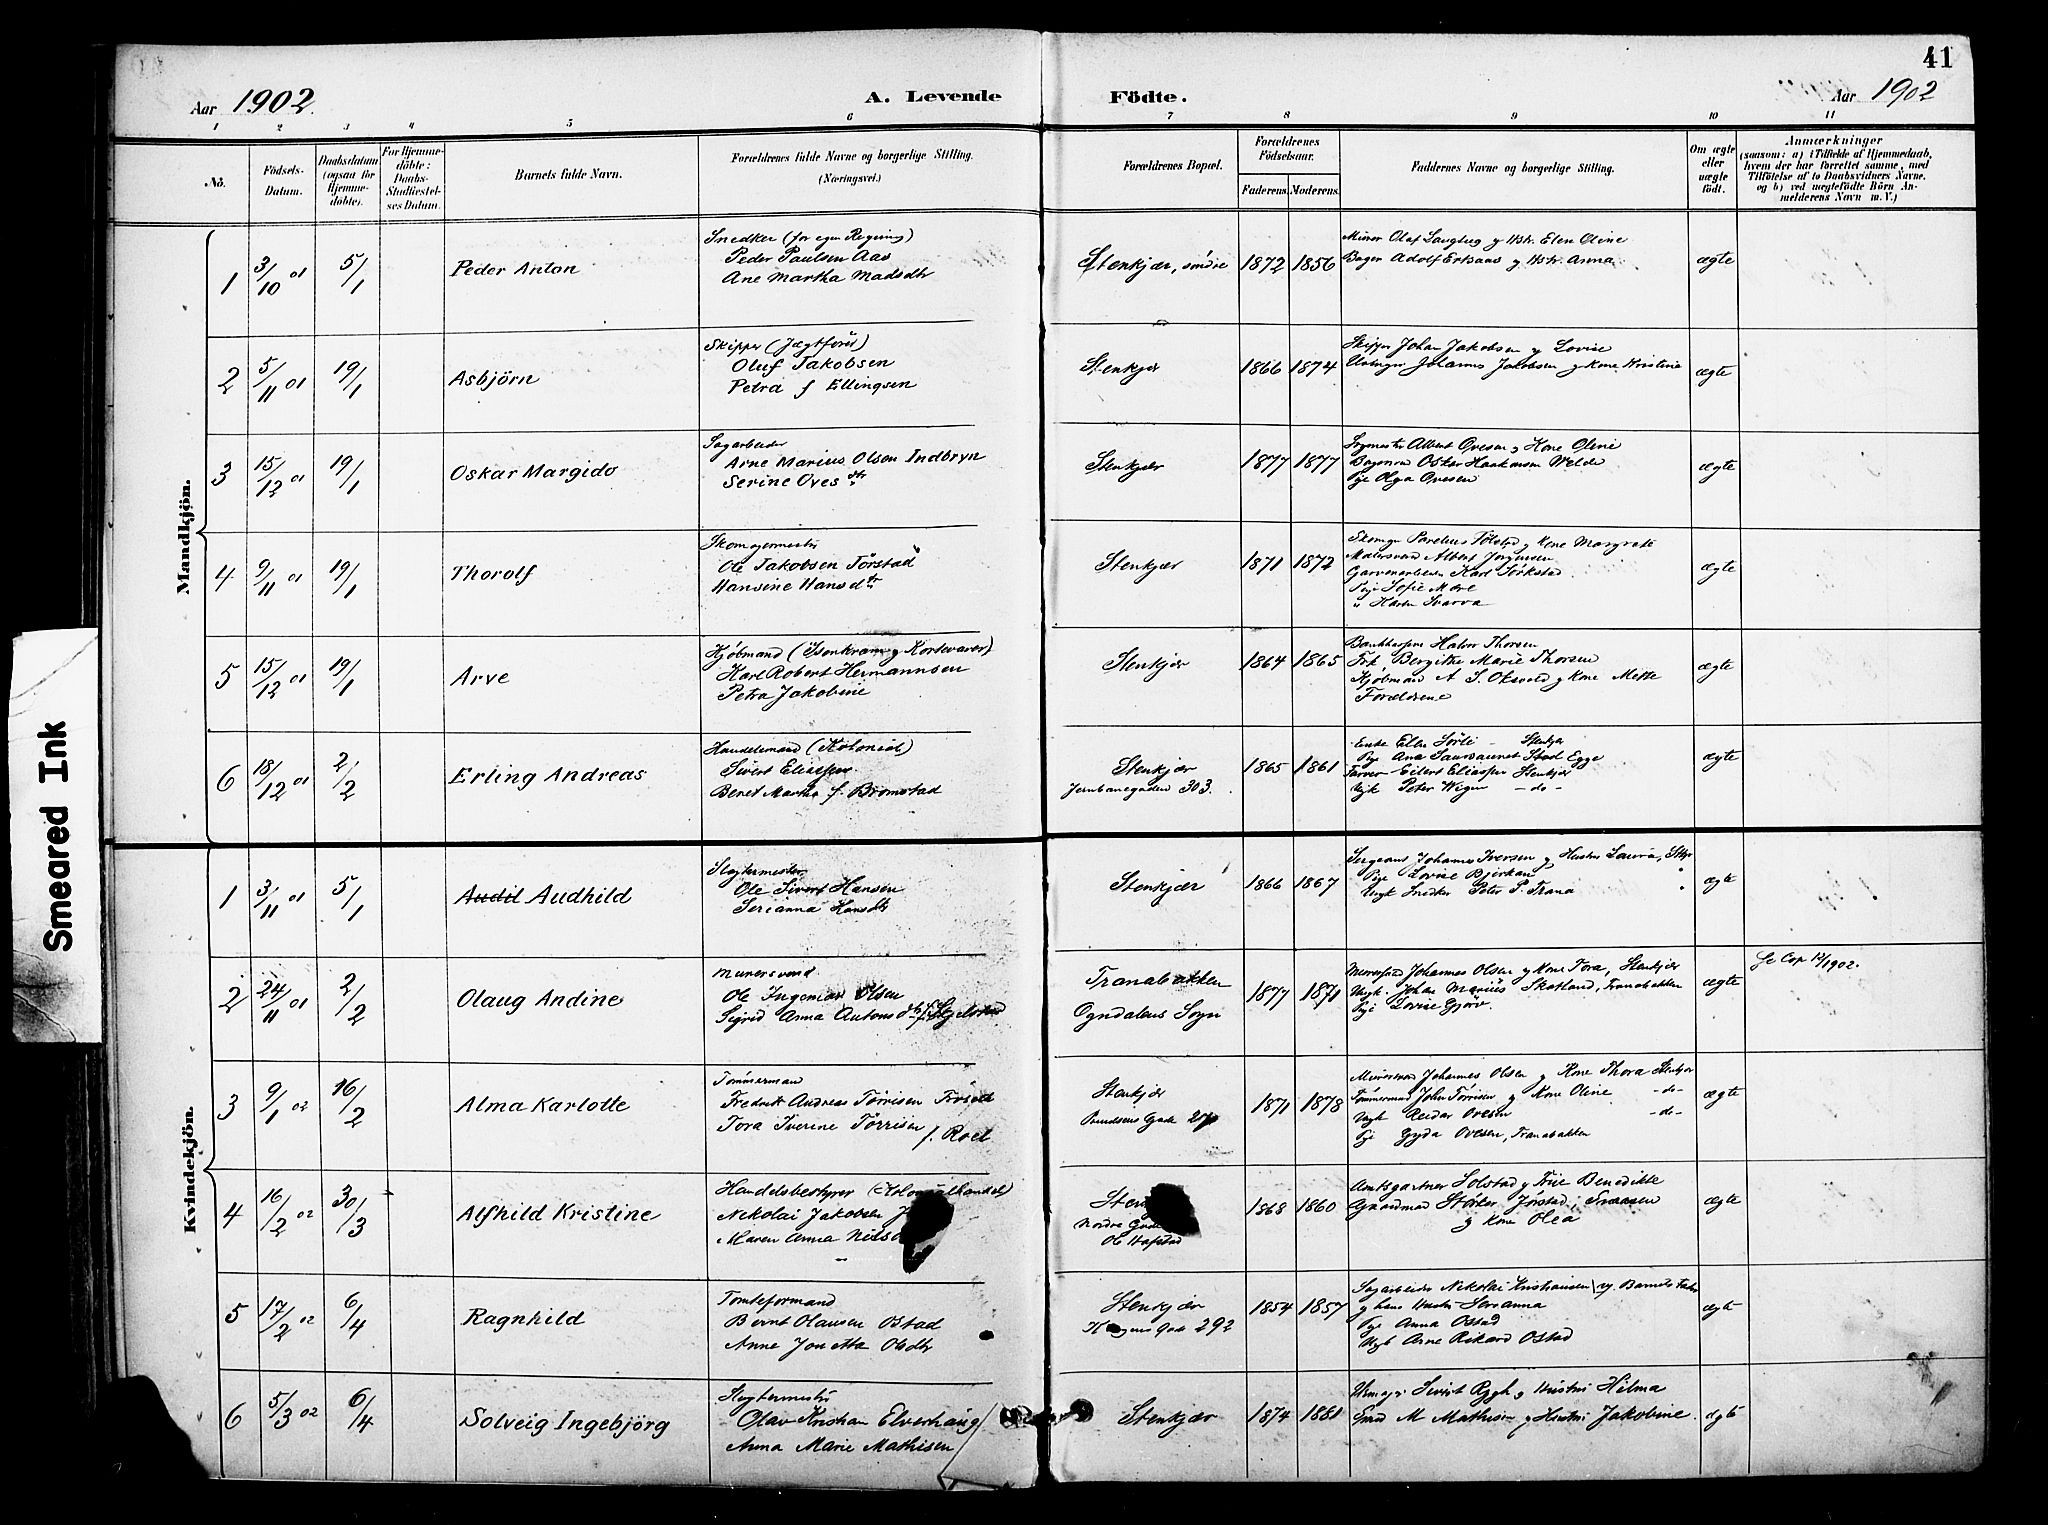 41
Aar 1902. A. Levende Födte. Aar 1902
1 2 3 4 5 6 7 8 9 10 11
Nô. Födsels-Datum. Daabsdatum (ogsaa for Hjemmedöbte). For Hjemmedöbte: Daabs-Stadfæstelses Datum. Barnets fulde Navn. Forældrenes fulde Navne og borgerlige Stilling. (Næringsvei.) Forældrenes Bopæl. Forældrenes Födselsaar. Faderens. Moderens. Faddernes Navne og borgerlige Stilling. Om ægte eller uægte födt. Anmærkninger (saasom: a) i Tilfælde af Hjemmedaab, hvem der har forrettet samme, med Tilföielse af to Daabsvidners Navne, og b) ved uægtefödte Börn Anmelderens Navn m.V.)
Mandkjön.
1 3/10 01 5/1 Peder Anton Snedker (for egen Regning)
Peder Paulsen Aas
Ane Martha Madsdtr
Stenkjær, söndre 1872 1856 Murer Olaf g Hstr. Elen Oline
Bager Adolf g Hstr. Anna ægte
2 5/11 01 19/1 Asbjörn Skipper (Jægtförer)
Oluf Jakobsen
Petra f Ellingsen
Stenkjær 1866 1874 Skipper Johan Jakobsen g Lovise
Johannes Jakobsen g Kone Kristine ægte
3 15/12 01 19/1 Oskar Margido Sagarbeider
Arne Marius Olsen Indbryn
Serine Ovesdtr
Stenkjær 1877 1877 Sagmester Albert Ovesen g Kone Oline
Oskar Haakensen Welde
Pige Olga Ovesen ægte
4 9/11 01 19/1 Thorolf Skomagermester
Ole Jakobsen Törstad
Hansine Hansdtr
Stenkjær 1871 1872 Skomgr g Kone Margrete
Malersvend Albert Jörgensen
Garverarbeider Karl
Pige Sofie Mære
" Svarva ægte
5 15/12 01 19/1 Arve Kjöbmand (Isenkram g Kortevarer)
Karl Robert Hermannsen
Petra Jakobine
Stenkjær 1864 1865 Halvor Thorsen
Frk. Bergithe Marie Thorsen
Kjöbmand A. S. g Kone Mette
Forældrene ægte
6 18/12 01 2/2 Erling Andreas Handelsmand (Kolonial)
Sivert Eliassen
Beret Martha f. Brömstad
Stenkjær
Jernbanegaden 303. 1865 1861 Enke Ellen Sörli – Stenkjær
Pige Ana Egge
Farver Eilert Eliassen Stenkjær
Ungk Peter Wigen – do – ægte
Kvindekjön.
1 3/11 01 5/1 Audil Audhild Slagtermester
Ole Sivert Hansen
Serianna Hansdtr
Stenkjær 1866 1867 Sergeant Johannes Iversen g Hustru Laura, Stkjr
Pige Lovise Björkan "
Ungk Snedker Peter P. Trana " ægte
2 24/11 01 2/2 Olaug Andine Murersvend
Ole Ingemar Olsen
Sigrid Anna Antonsdtr
Tranabakken
Ogndalens Sogn 1877 1871 Murersvd Johannes Olsen g Kone Tora, Stenkjær
Ungk. Johan Marius Skatland, Tranabakken
Pige Lovise Gjörv ægte Se Cop 1902.
3 9/1 02 16/2 Alma Karlotte Tömmermand
Fredrik Andreas Törrisen
Tora Iverine Törrisen f. Roel
Stenkjær
Gade 1871 1878 Murersvend Johannes Olsen g Kone Thora Stenkjær
Tömmermand John Törrisen g Kone Oline – do –
Ungk Reidar Ovesen – do –
Pige Gyda Ovesen, Tranabakken ægte
4 16/2 02 30/3 Alfhild Kristine Handelsbestyrer (Kolonialhandel)
Nikolai Jakobsen
Maren Anna Nilsd
Sten
Nordre Gade
Ole Hafstad 1868 1860 Amtsgartner Solstad g Frue Benedikte
Gaardmand Jörstad, Snaasen
g Kone Olea ægte
5 17/2 02 6/4 Ragnhild Tomteformand
Bernt Olausen Ostad
Anne Jonetta Olsdtr
Stenkjær
Kongens Gade 292 1854 1857 Sagarbeider Nikolai Kristiansen
g hans Hustru Serianna
Pige Anna Ostad
Ungk Arne Rikard Ostad ægte
6 5/3 02 6/4 Solveig Ingebjörg Slagtermester
Olav Kristian Elverhaug
Anna Marie Mathisen
Stenkjær 1874 1881 Sivert Rygh g Hustru Hilma
Smed M Mathisen g Hustru Jakobine. ægte
Smeared Ink